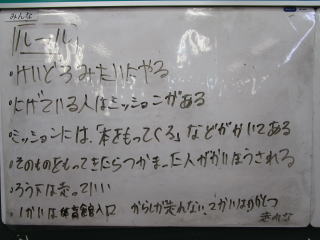 みんな
ルール
・けいどろみたいにやる
・にげている人はミッションがある
・ミッションには、「本をもってくる」などがかいてある
・そのものをもってきたらつかまった人がかいほうされる
・ろう下は走っていい
・1かいは体育館入口 からしか走れない、2かいは
走れな